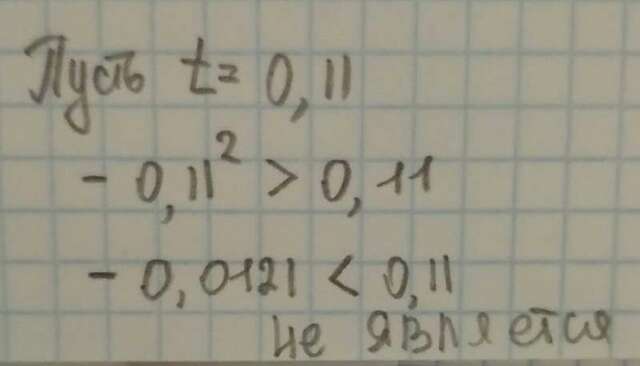 Пусть t = 0,11
- 0,11² > 0,11
- 0,0121 < 0,11
не является